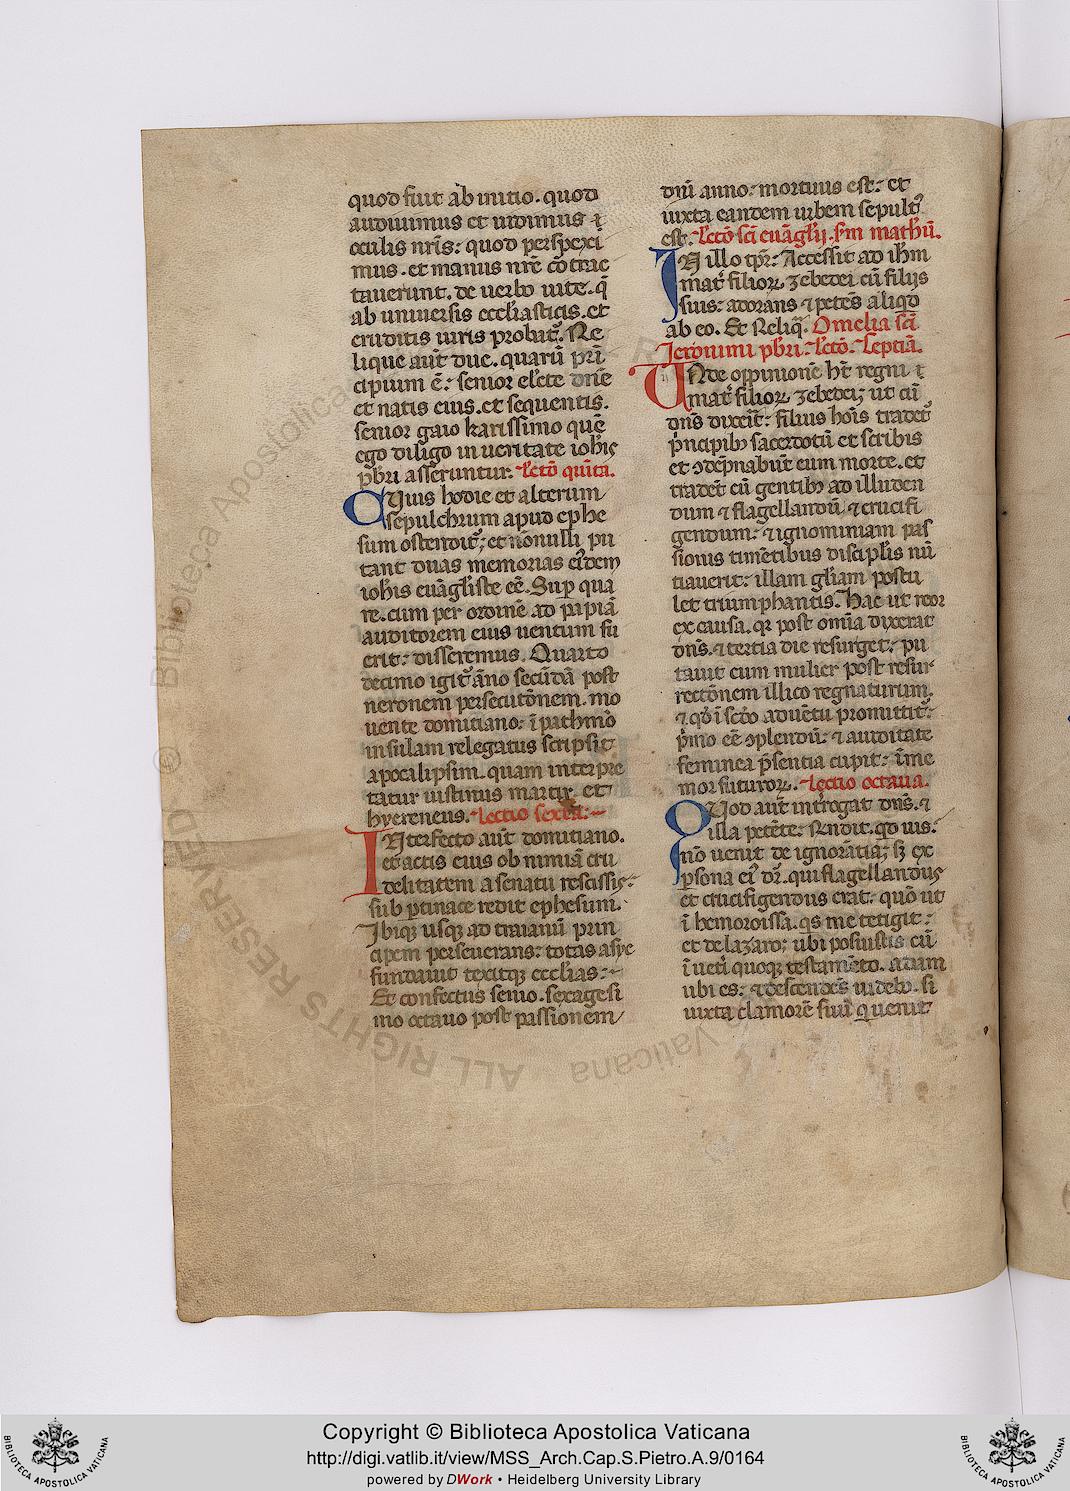 quod fuit ab initio. quod
audiuimus et uidimus ⁊
oculis nr̄is: quod perspexi
mus. et manus nr̄e cōtrac
tauerunt. de uerbo uite. q̄
ab uniuersis eccl̄iasticis. et
eruditis uiris probat᷒. Re
lique aūt due. quarū prī
cipium ē: senior el̄cte dn̄e
et natis eius. et sequentis.
senior gaio karissimo quē
ego diligo in ueritate ioh̄is
pb̄ri asseruntur. Lct̄o quīta.
Cuius hodie et alterum
sepulchrum apud ephe
sum ostendit᷒; et nōnulli pu
tant duas memorias ei᷒dem
ioh̄is euāgl̄iste eē. Sup̄ qua
re. cum per ordinē ad papiā
auditorem eius uentum fu
erit: disseremus. Quarto
decimo igit᷒ āno secūdā post
neronem persecutōnem. mo
uente domitiano: ī pathmō
insulam relegatus scripsit
apocalipsim. quam interpre
tatur iustinus martir. et
hyereneus. Lectio sexta:
Interfecto aūt domitiano.
et actis eius ob nimiā cru
delitatem a senatu rescissis:
sub p̄tinace redit ephesum.
Ibiq; usq; ad traianū prin
cipem perseuerans: totas asye
fundauit rexitq; eccl̄ias:
Et confectus senio. sexagesi
mo octauo post passionem
dn̄i anno: mortuus est: et
iuxta eandem urbem sepult᷒
est. Lct̄o sc̄i euāgl̄ij. s̄m math̄ū.
In illo tp̄r: Accessit ad ih̄m
mat᷒ filioꝝ zebedei cū filijs
suis: adorans ⁊ petēs aliqd̄
ab eo. Et Reliq̄. Omelia sc̄i
Jeronimi pb̄ri. Lct̄o. Septīa.
Unde oppinionē h̄t regni ⁊
mat᷒ filioꝝ zebedei; ut cū
dn̄s dixeīt: filius hoīs tradet᷒
p̄ncipib; sacerdotū et scribis
et ꝯdep̄nabūt eum morte. et
tradēt cū gentib; ad illuden
dum ⁊ flagellandū ⁊ crucifi
gendum: ⁊ ignominiam pas
sionis timētibus discipl̄is nū
tiauerit: illam gl̄iam postu
let triumphantis. Hac ut reor
ex causa. qꝛ post omīa dixerat
dn̄s. ⁊ tertia die resurget: pu
tauit eum mulier post resur
rectōnem illico regnaturum.
⁊ qd̄ ī sc̄do aduētu promittit᷒:
p̄mo eē ꝯplendū: ⁊ auiditate
feminea p̄sentia cupit: īme
mor futuroꝝ. Lectio octaua.
Quod aūt int᷒rogat dn̄s. ⁊
illa petēte: Rn̄dit. qd̄ uis:
nō uenit de ignorātia; sꝫ ex
ꝑsona ei᷒ dr̄. qui flagellandus
et crucifigendus erat: quō ut
ī hemoroissa. qs̄ me tetigit:
et de lazaro; ubi posuistis eū
ī uet᷒i quoq; testamēto. adam
ubi es: ⁊ descendēs uidebo. si
iuxta clamorē suū q̄ uenit
Copyright © Biblioteca Apostolica Vaticana
http://digi.vatlib.it/view/MSS_Arch.Cap.S.Pietro.A.9/0164
powered by DWork • Heidelberg University Library